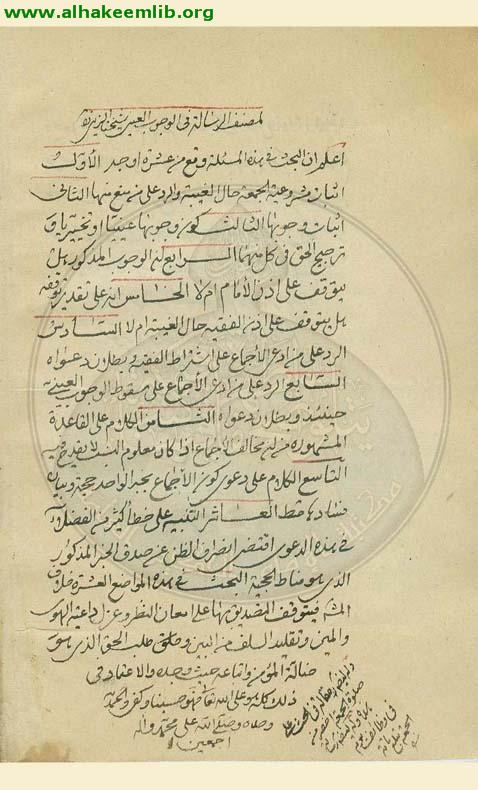 www.alhakeemlib.org
لمصنف الرسالة في الوجوب العيني
اعلم ان البحث في هذه المسئلة وقع من عشرة اوجه الأول
اثبات مشروعية الجمعة حال الغيبة والرد على من منع منها الثاني
اثبات وجوبها الثالث كون وجوبها عينيا او تخييريا و
ترجيح الحق في كل منهما الرابع ان الوجوب المذكور هل
يتوقف على اذن الأمام ام لا الخامس انه على تقدير توقفه
هل يتوقف على اذن الفقيه حال الغيبة ام لا السادس
الرد على من ادعى الأجماع على اشتراط الفقيه وبطلان دعواه
السابع الرد على من ادعى الأجماع على سقوط الوجوب العيني
حينئذ وبطلان دعواه الثامن الكلام على القاعدة
المشهورة من ان مخالف الأجماع اذا كان معلوم النسب لا يقدح فيه
التاسع الكلام على دعوى كون الأجماع بخبر الواحد حجة وبيان
فسادها العاشر التنبيه على خطأ كثير من الفضلاء
في هذه الدعوى اقتضى انصراف الظن عن صدق الخبر المذكور
الذي هو مناط الحجية البحث في هذه المواضع العشرة خلاف
فيتوقف التصديق بها على امعان النظر وعزل داعية الهوى
والمين وتقليد السلف من البين وخلوص طلب الحق الذي هو
ضالة المؤمن واتباعه حيث وجده والاعتماد في
ذلك كله على الله تعالى فهو حسبنا وكفى والحمد لله
وحده وصلى الله على محمد واله
اجمعين